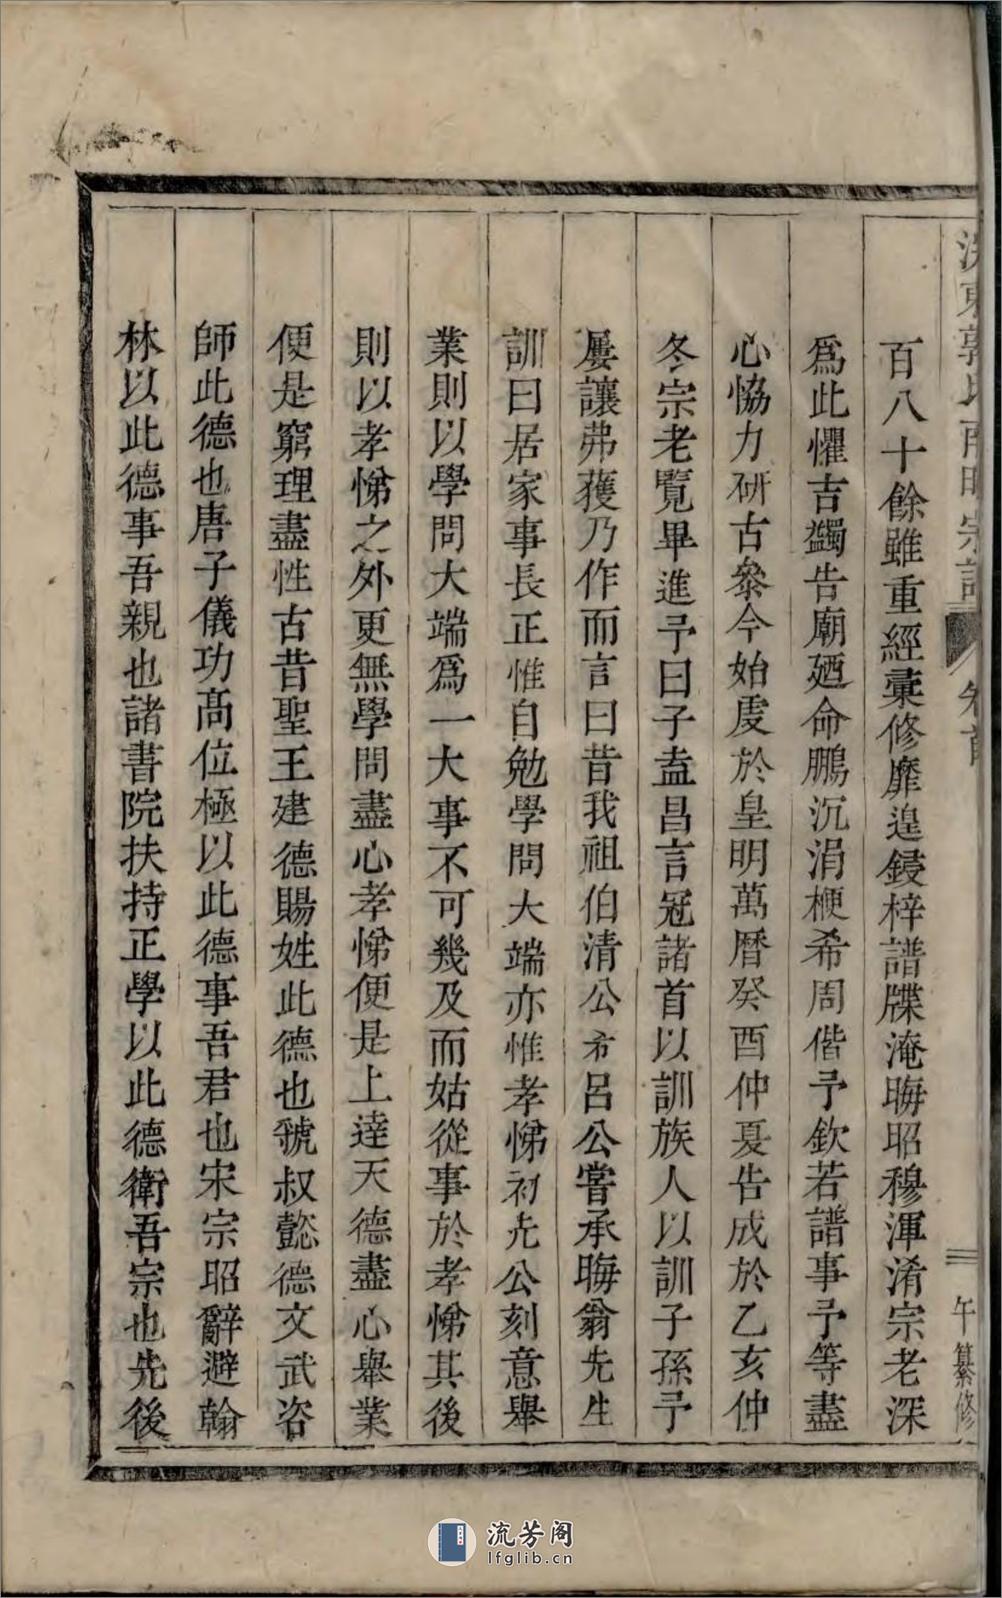 氏
宗譜
卷首
三
午纂修
百八十餘雖重經彙修靡遑鋟梓譜牒淹晦昭穆渾淆宗老深
爲此懼吉蠲告廟廼命鵬沉涓梗希周偕予欽若譜事予等盡
心恊力研古叅今始虔於皇明萬曆癸酉仲夏告成於乙亥仲
冬宗老覽畢進予曰子盍昌言冠諸首以訓族人以訓子孫予
屢讓弗蒦乃作而言曰昔我祖伯清公希呂公嘗承晦翁先生
訓曰居家事長正惟自勉學問大端亦惟孝悌初先公刻意舉
業則以學問大端爲一大事不可幾及而姑從事於孝悌其後
則以孝悌之外更無學問盡心孝悌便是上逹天德盡心舉業
便是窮理盡性古昔聖王建德賜姓此德也虢叔懿德文武咨
師此德也唐子儀功髙位極以此德事吾君也宋宗昭辭避翰
林以此德事吾親也諸書院扶持正學以此德衛吾宗也先後
流芳阁
lfglib.cn